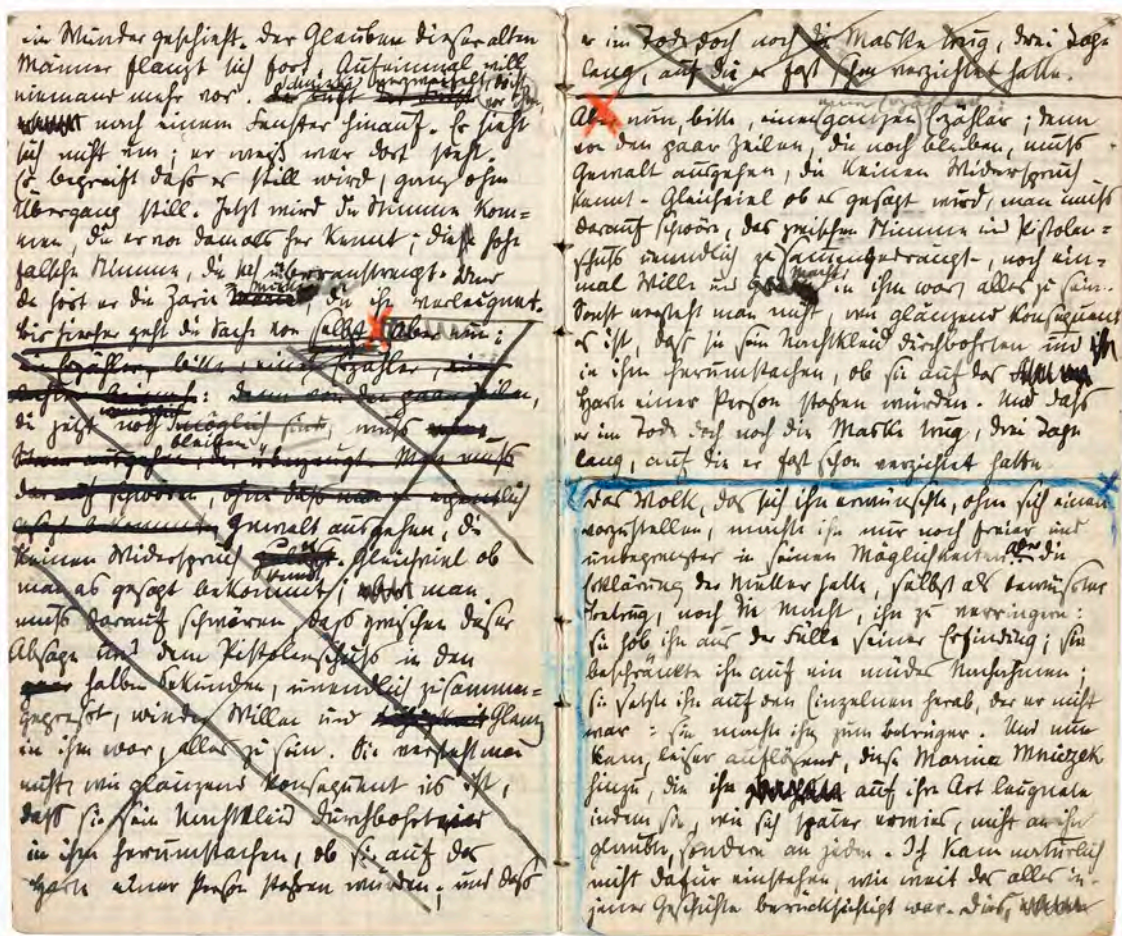 ein Wunder geschieht. Der Glauben dieser alten
Männer pflanzt sich fort, Aufeinmal will
niemand mehr vor.
nach einem Fenster hinauf. Er sieht
sich nicht um; er weiß wer dort steht.
Er begreift daß es still wird, ganz ohne
Übergang still. Jetzt wird die Stimme kom=
men, die er von damals her kennt; diese hohe
falsche Stimme, die sich überanstrengt. Und
da hört er die Zarin Mutter, die ihn verleugnet.
Bis hierher geht die Sache von selbst. Aber nun:
ein Erzähler, bitte, einen Erzähler,
denn von den paar Zeilen,
die jetzt noch möglich sind, muß
bleiben
ausgehen, die überzeugt. Man muß
darauf schwören, ohne daß man es eigentlich
gesagt bekommt, Gewalt ausgehen, die
keinen Widerspruch kennt. Gleichviel ob
man es gesagt bekommt; man
muß darauf schwören, daß zwischen dieser
Absage und dem Pistolenschuß in den
halben Sekunden, unendlich zusammen=
gepresst, wieder Willen und Glanz
in ihm war, alles zu sein. Sie versteht man
nicht, wie glänzend konsequent es ist,
daß sie sein Nachtkleid durchbohrt
in ihm herumstachen, ob sie auf das
Harte einer Person stoßen würden; und daß
er im Tode doch noch die Maske trug, drei Tage
lang, auf die er fast schon verzichtet hatte.
Aber nun, bitte, einen (ganzen) Erzähler; denn
von den paar Zeilen, die noch bleiben, muß
Gewalt ausgehen, die keinen Widerspruch
kennt. Gleichviel ob es gesagt wird, man muß
darauf schwören, daß zwischen Stimme und Pistolen=
schuß unendlich zusammengedrängt, noch ein=
mal Wille und Macht in ihm war, alles zu sein.
Sonst versteht man nicht, wie glänzend konsequent
es ist, daß sie sein Nachtkleid durchbohrten und
in ihm herumstachen, ob sie auf das
Harte einer Person stoßen würden. Und daß
er im Tode doch noch die Maske trug, drei Tage
lang, auf die er fast schon verzichtet hatte.
Das Volk, das sich ihn erwünschte, ohne sich einen
vorzustellen, machte ihn nur noch freier und
unbegrenzter in seinen Möglichkeiten. Aber die
Erklärung der Mutter hatte, selbst als bewusster
Betrug, noch die Macht, ihn zu verringern:
sie hob ihn aus der Fülle seiner Erfindung; sie
beschränkte ihn auf ein müdes Nachahmen;
sie setzte ihn auf den Einzelnen herab, der er nicht
war: sie machte ihn zum Betrüger. Und nun
kam, leiser auflösend, diese Marina Mniczek
hinzu, die ihn auf ihre Art leugnete
indem sie, wie sich später erwies, nicht an ihn
glaubte, sondern an jeden. Ich kann natürlich
nicht dafür einstehen, wie weit das alles in
jener Geschichte berücksichtigt war. Dies,